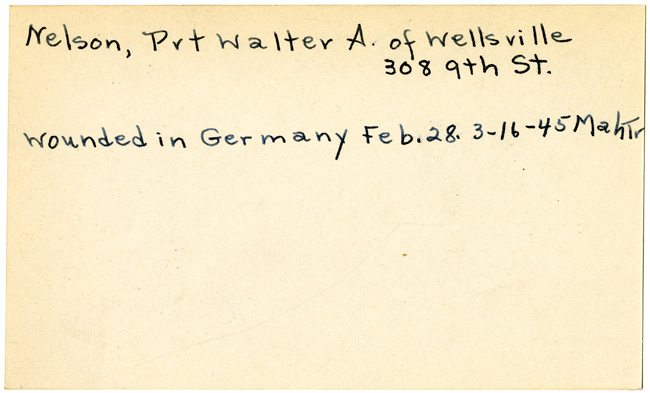 Nelson, Pvt Walter A. of Wellsville
308 9th St.
Wounded in Germany Feb. 28. 3-16-45 Mah Tr